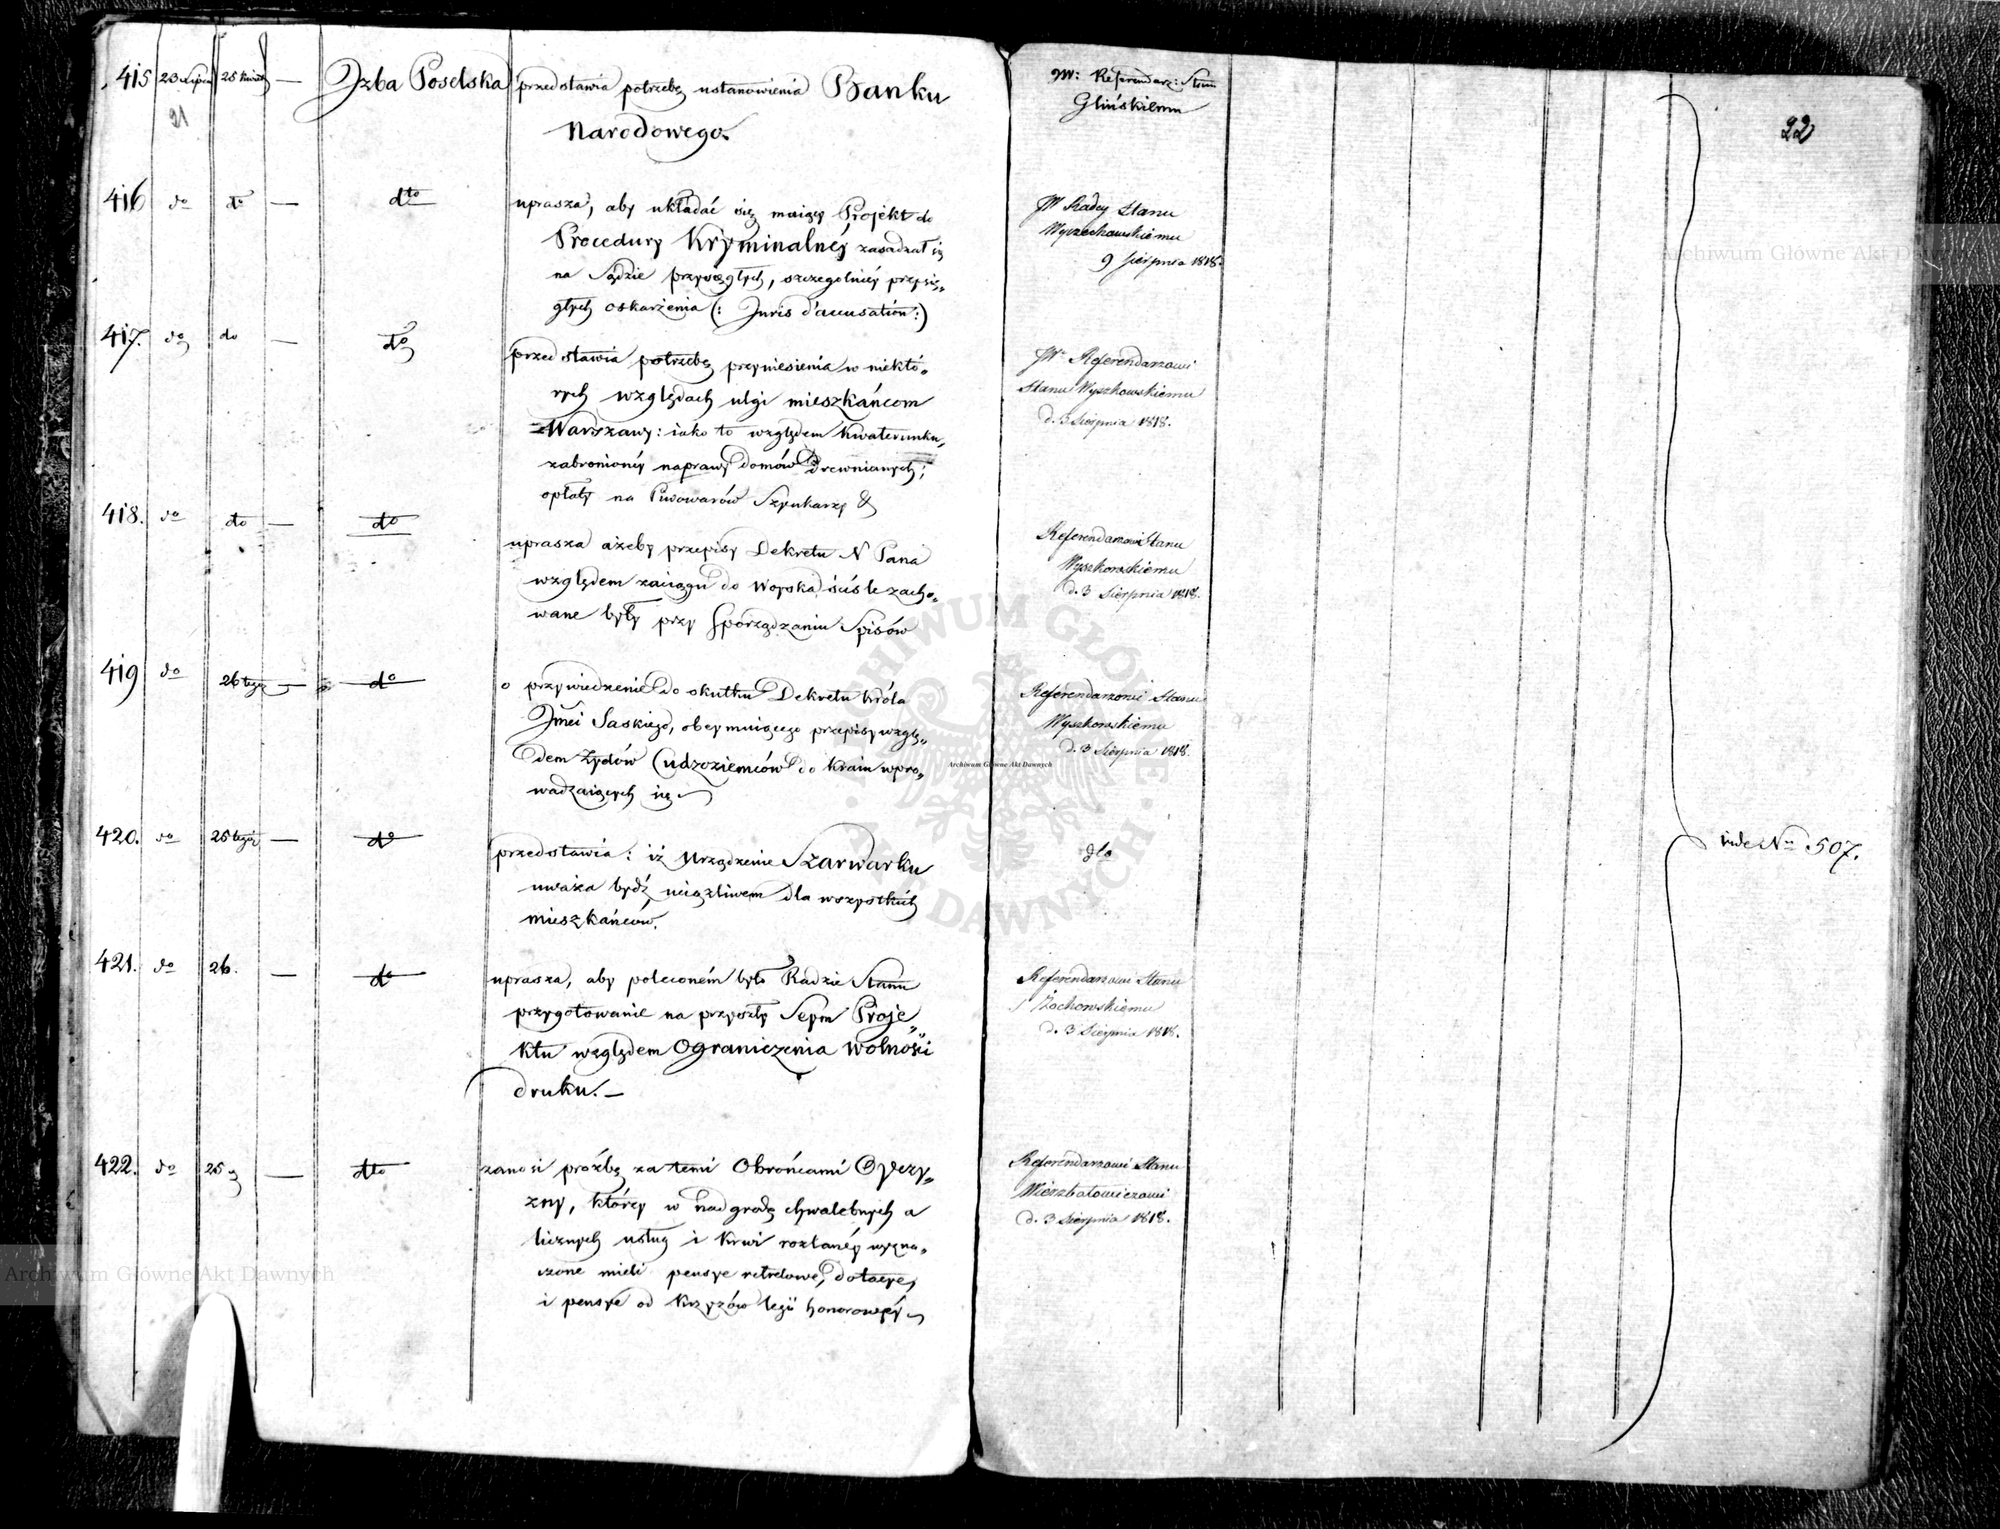 415 23 Lipca 25 Kwiet — Izba Poselska przedstawia potrzebę ustanowienia Banku
Narodowego.
JW: Referendarz: Stanu
Glińskiemu
21
22
416 do do — dto uprasza, aby układać się maiący Projekt do
Procedury Kryminalnéy zasadzał się
na Sądzie przysięgłych, szczegolniéy przysię„
głych oskarżenia (: Juris d'accusation :)
JW Radcy Stanu
Wyczechowskiemu
9 Sierpnia 1818.
417. do do — do przedstawia potrzebę przyniesienia w niektó„
rych względach ulgi mieszkańcom
Warszawy: iako to względem Kwaterunku,
zabronionéy naprawy domów drewnianych;
opłaty na Piwowarów Szynkarzy &
JW Referendarzowi
Stanu Wyszkowskiemu
d. 3 Sierpnia 1818.
418. do do — do uprasza ażeby przepisy Dekretu N Pana
względem zaciągu do Woyska ściśle zacho„
wane były przy sporządzaniu Spisów
Referendarzowi Stanu
Wyszkowskiemu
d. 3 Sierpnia 1818.
419 do 26 tegoż — do o przywiedzenie do skutku Dekretu Króla
Jmci Saskiego, obeymuiącego przepisy wzglę„
dem Żydów Cudzoziemców do Kraiu wpro„
wadzaiących się
Referendarzowi Stanu
Wyszkowskiemu
d. 3 Sierpnia 1818.
420. do 25 tegoż — do przedstawia: iż Urządzenie Szarwarku
uważa bydź uciążliwem dla wszystkich
mieszkańców.
dto
vide No 507.
421. do 26. — do uprasza, aby poleconém było Radzie Stanu
przygotowanie na przyszły Seym Proje„
ktu względem Ograniczenia Wolności
druku. —
Referendarzowi Stanu
Żochowskiemu
d. 3 Sierpnia 1818.
422. do 25 — dto zanosi proźbę za temi Obrońcami Oyczy„
zny, którzy w nadgrodę chwalebnych a
licznych usług i krwi rozlanéy wyzna„
czone mieli pensye retretowe, dotacye,
i pensye od Krzyżów legii honorowéy
Referendarzowi Stanu
Wierzbołowiczowi
d. 3 Sierpnia 1818.
Archiwum Główne Akt Dawnych
Archiwum Główne Akt Dawnych
Archiwum Główne Akt Dawnych
ARCHIWUM GŁÓWNE AKT DAWNYCH